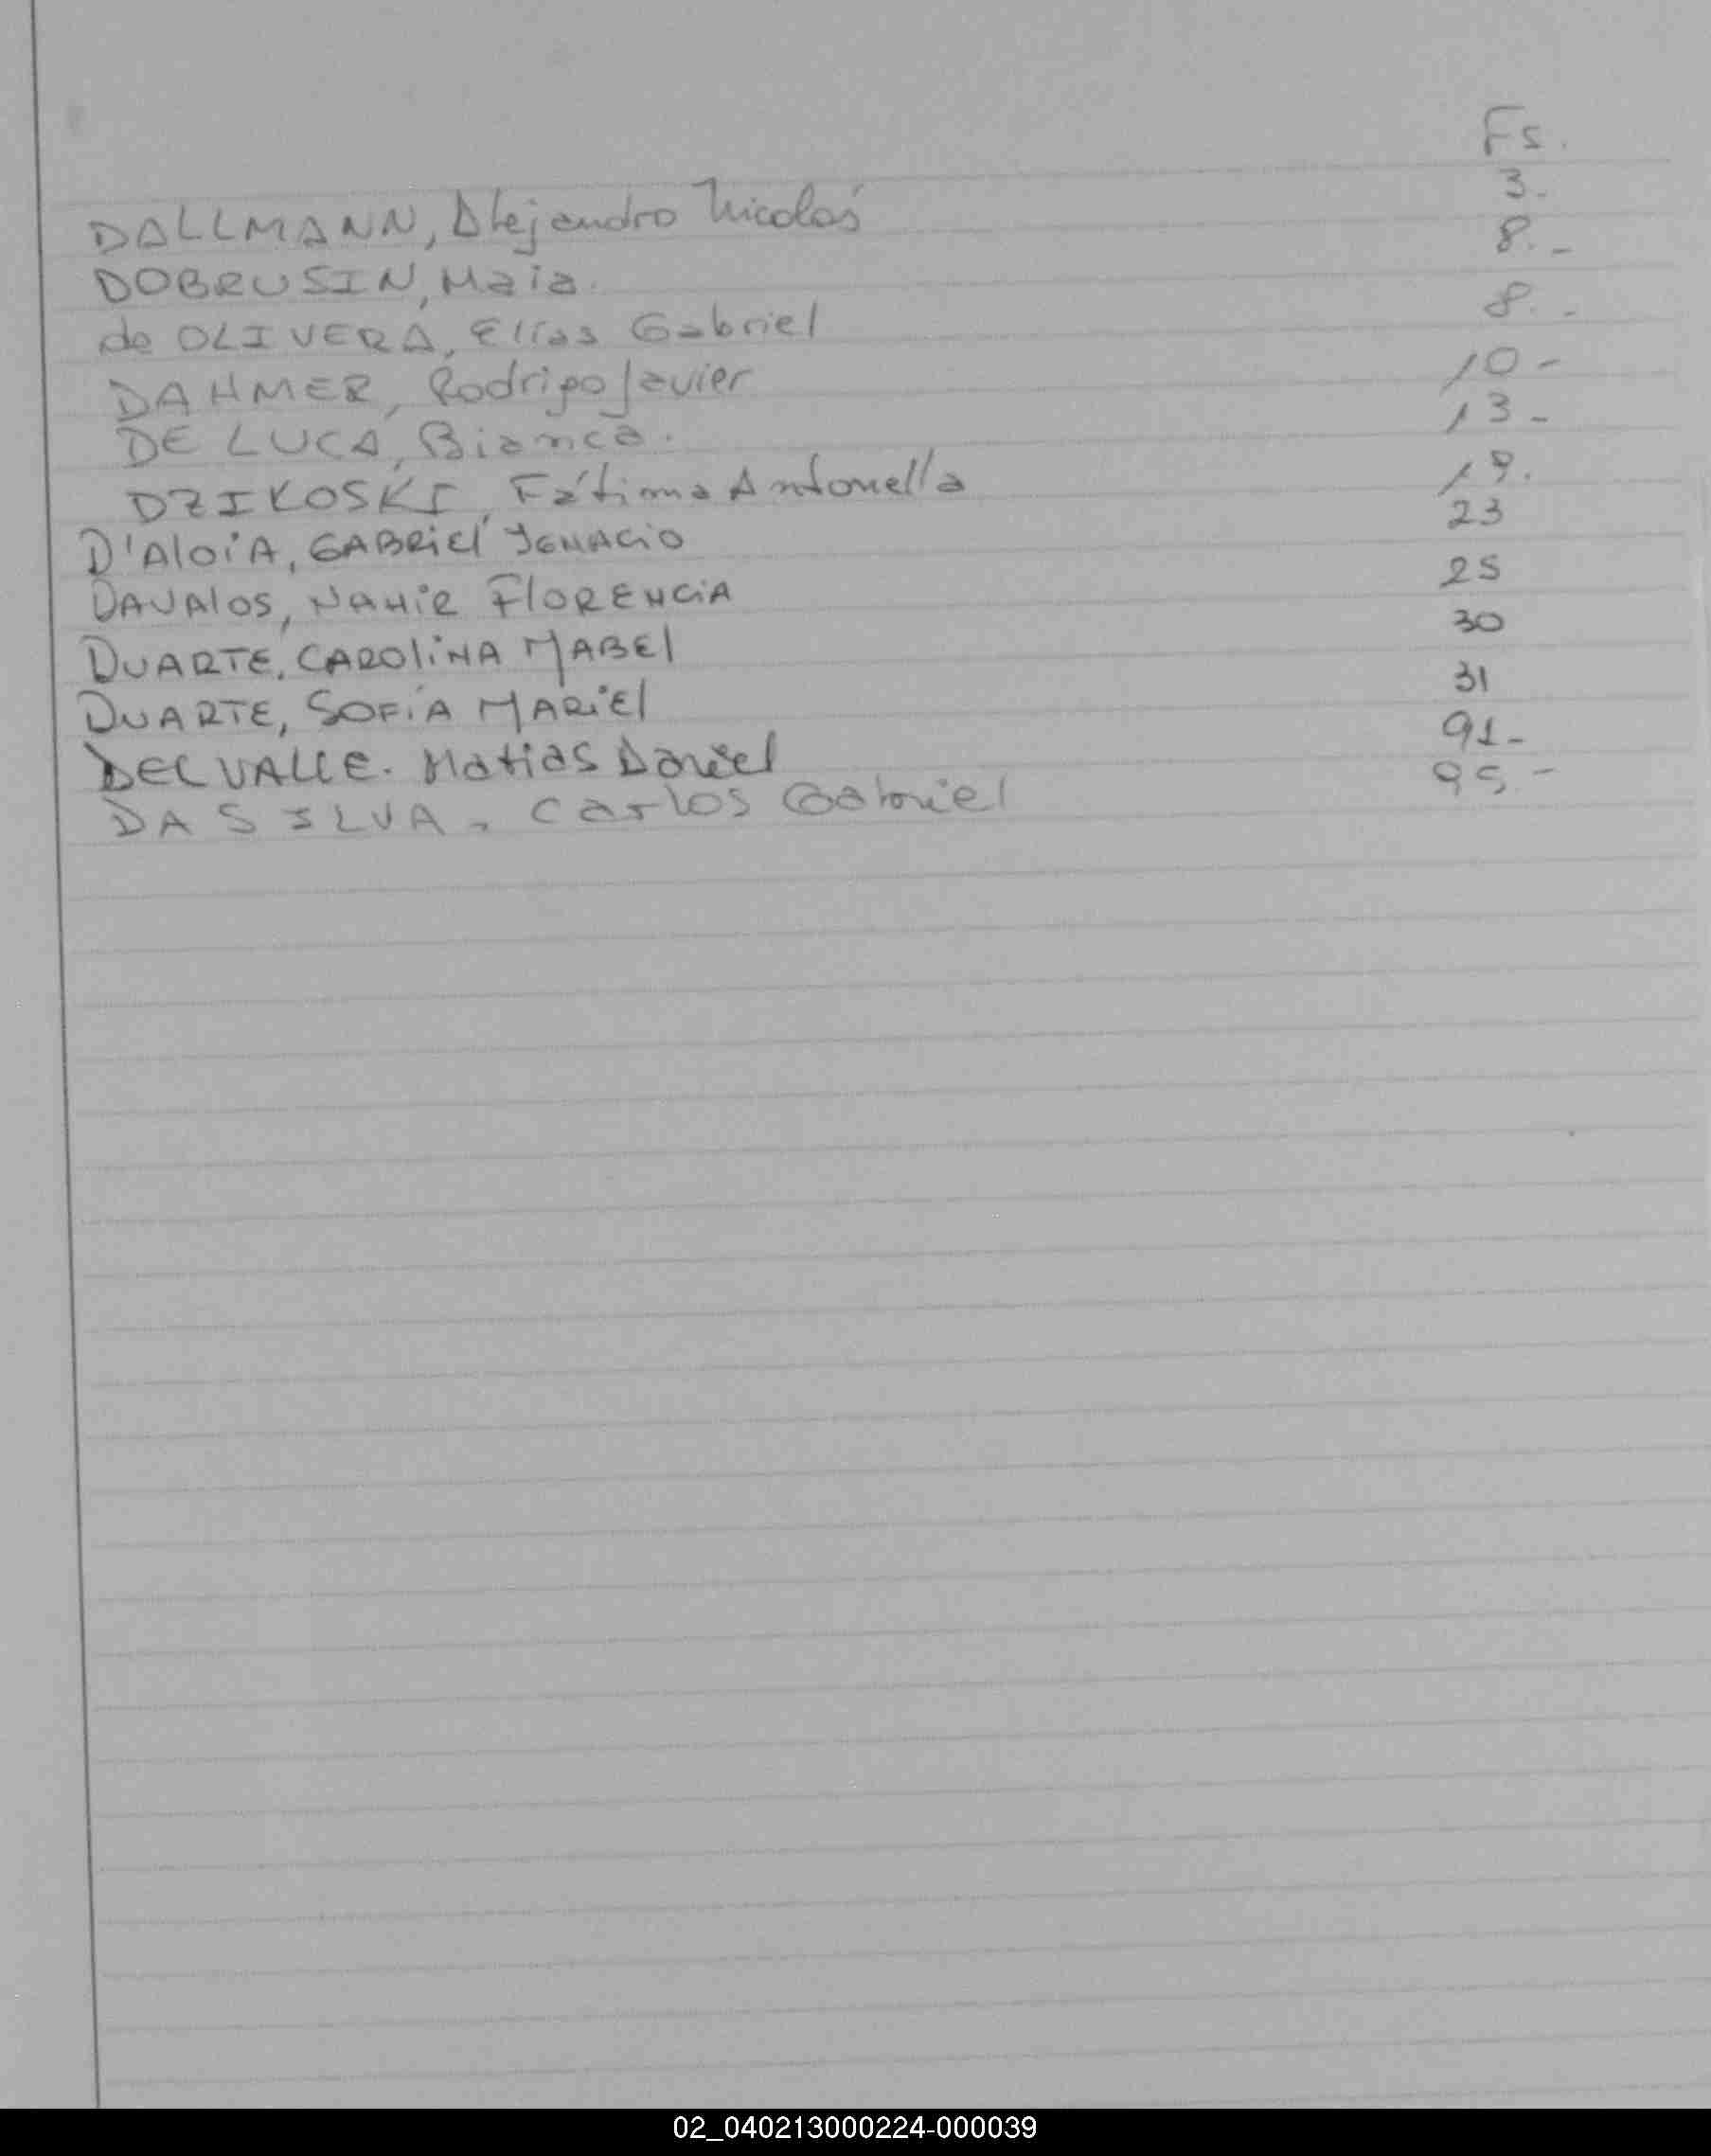 Fs.
DALLMANN, Alejandro Nicolás 3.
DOBRUSIN, Maia. 8.-
de OLIVERA, Elías Gabriel 8.-
DAHMER, Rodrigo Javier 10-
DE LUCA, Bianca. 13-
DZIKOSKI, Fátima Antonella 19.
D'AloiA, GABRiEl IGNACiO 23
DAVAlos, NAHiR FlORENCiA 25
DUARTE, CAROliNA MABEl 30
DUARTE, SOFíA MARiEl 31
DEL VALLE. Matias Daniel 91-
DA SILVA, Carlos Gabriel 95-
02_040213000224-000039